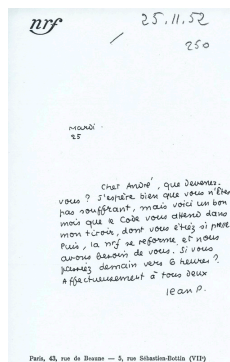 nrf
25.11.52
250
Mardi
25
Cher André, que devenez-
vous ? J'espère bien que vous n'êtes
pas souffrant, mais voici un bon
mois que le Code vous attend dans
mon tiroir, dont vous étiez si pressé
Puis, la nrf se reforme, et nous
avons besoin de vous. Si vous
passiez demain vers 6 heures ?
Affectueusement à tous deux
Jean P.
Paris, 43, rue de Beaune — 5, rue Sébastien-Bottin (VIIe)